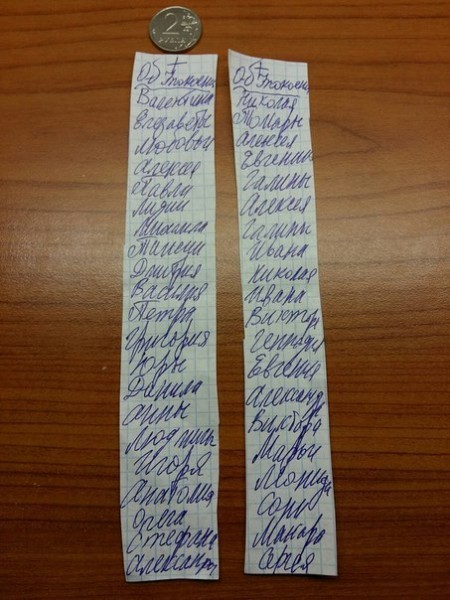 2
РУБЛЯ
Об упокоении
Валентина
Елизаветы
Любовьи
Алексея
Павла
Лидии
Михаила
Таисии
Дмитрия
Василия
Петра
Григория
Юры
Данила
Анны
Людмилы
Игоря
Анатолия
Олега
Стефана
Александр
Об упокоении
Николая
Тамары
Алексея
Евгении
Галины
Алексея
Галины
Ивана
Николая
Ивана
Виктор
Геннадия
Евгения
Александр
Виктора
Марьи
Леонида
Макара
Сергея